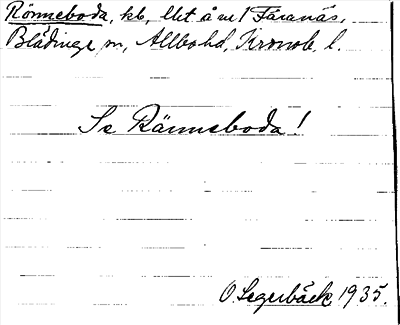 Rönneboda, kb, lht å m 1 Faranäs,
Blädinge sn, Allbo hd, Kronob. l.
Se Ränneboda!
O. Segerbäck 1935.